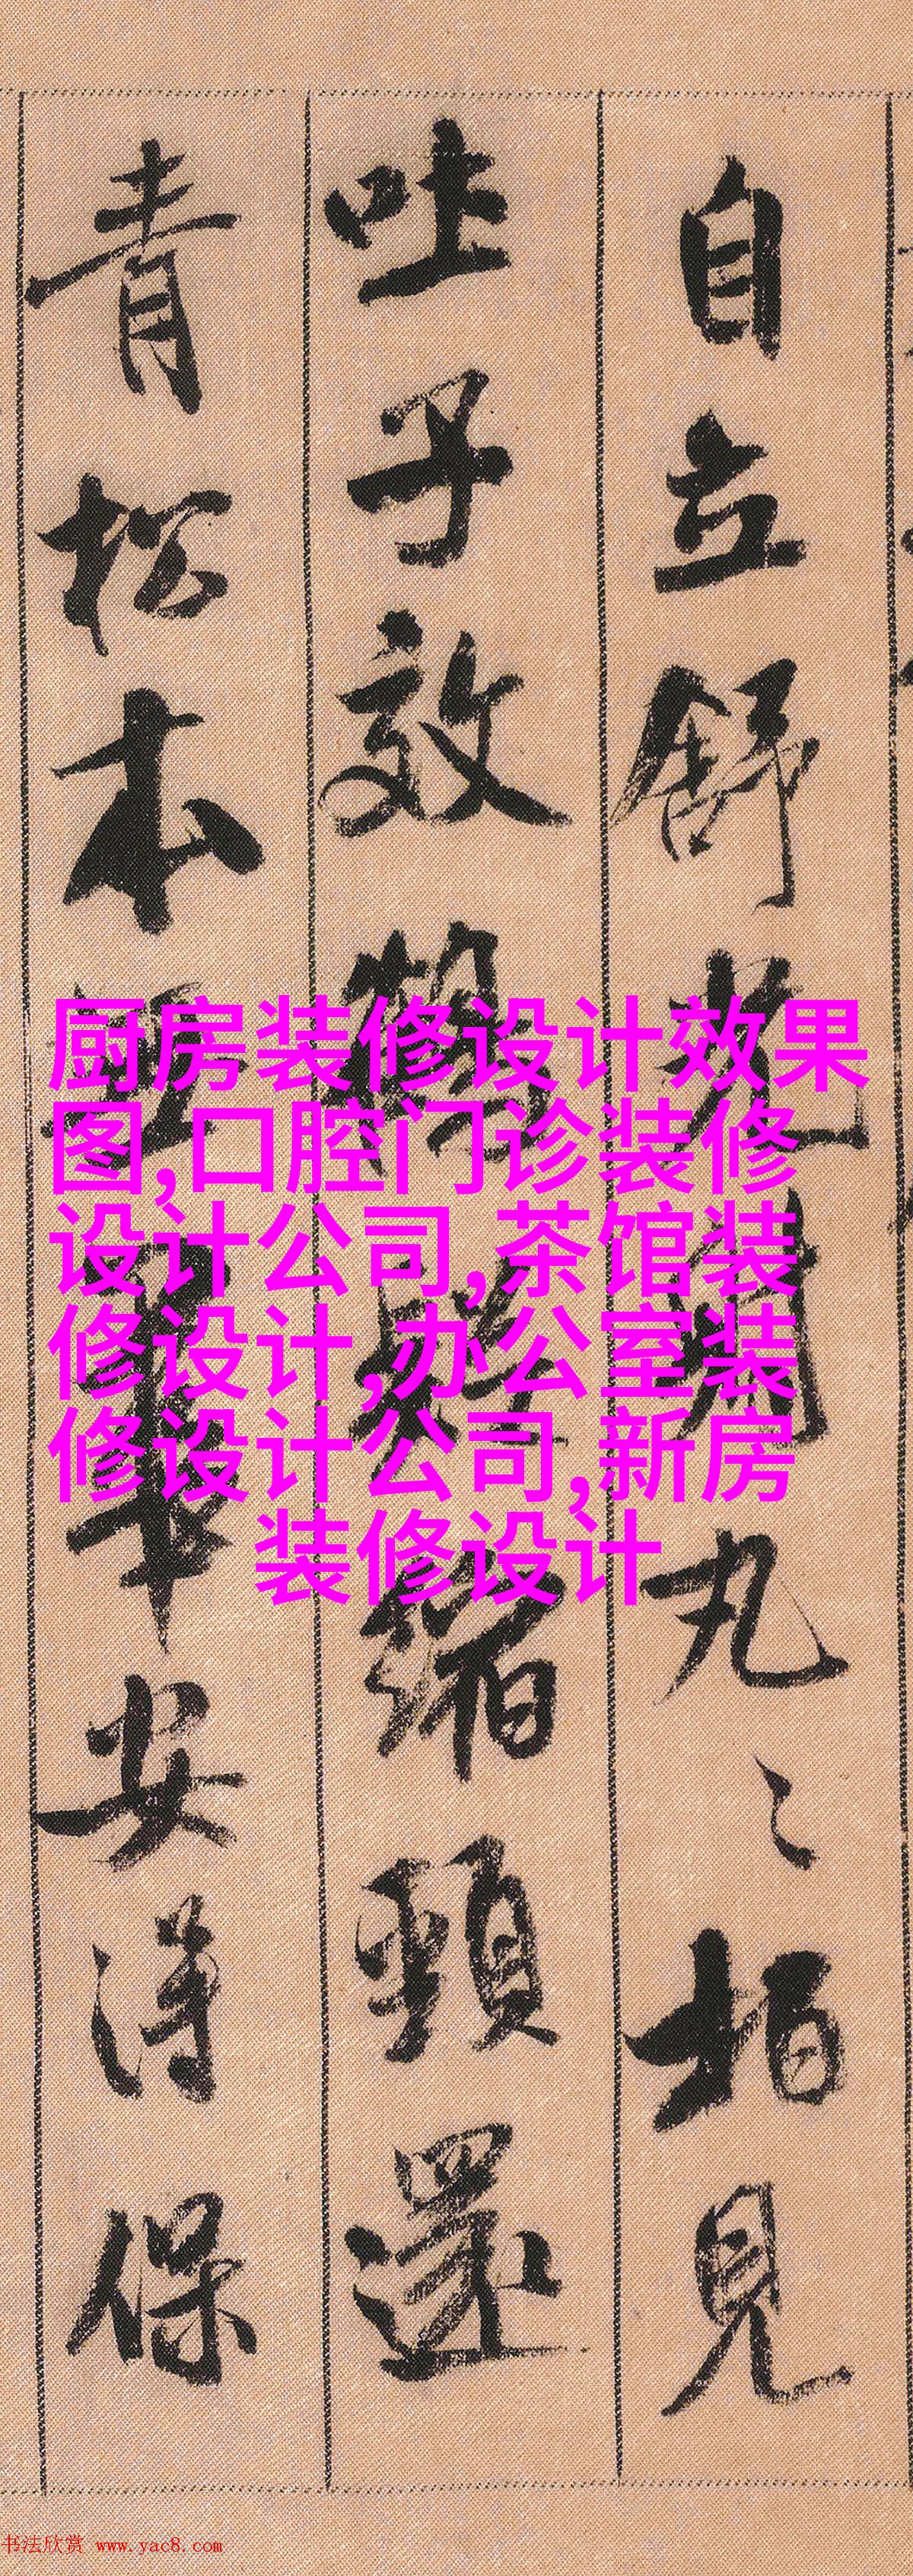 自立舒光射丸〻柏見
吐子效鶴疑縮頸還
青松本無華安得保
厨房装修设计效果
图,口腔门诊装修
设计公司,茶馆装
修设计,办公室装
修设计公司,新房
装修设计
书法欣赏 www.yac8.com